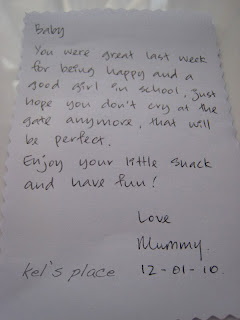 Baby
You were great last week
for being happy and a
good girl in school. Just
hope you don't cry at the
gate anymore, that will
be perfect.
Enjoy your little snack
and have fun!
Love
Mummy.
12-01-10.
kel's place